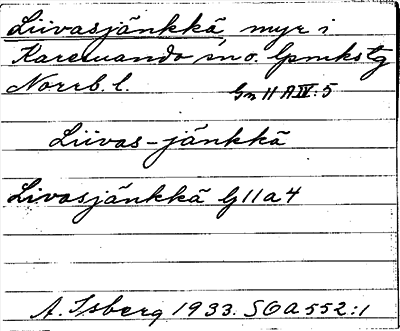 Liivasjänkkä, myr i
Karesuando sn o. lpmkstg
Norrb. l.
Gn 11 A IV:5
Liivas-jänkkä
Livasjänkkä G11a4
A. Isberg 1933. SOA 552:1